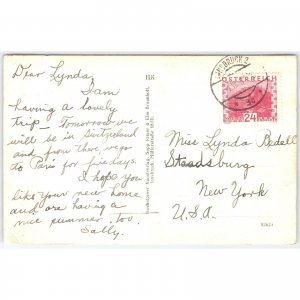 Dear Lynda,
I am
having a lovely
trip - Tomorrow we
will be in Switzerland
and from there we go
to Paris for five days.
I hope you
like your new home
and are having a
nice summer too.
Sally.
INNSBRUCK 2
ÖSTERREICH
24
Miss Lynda Bedell
Staatsburg
New York
U.S.A.